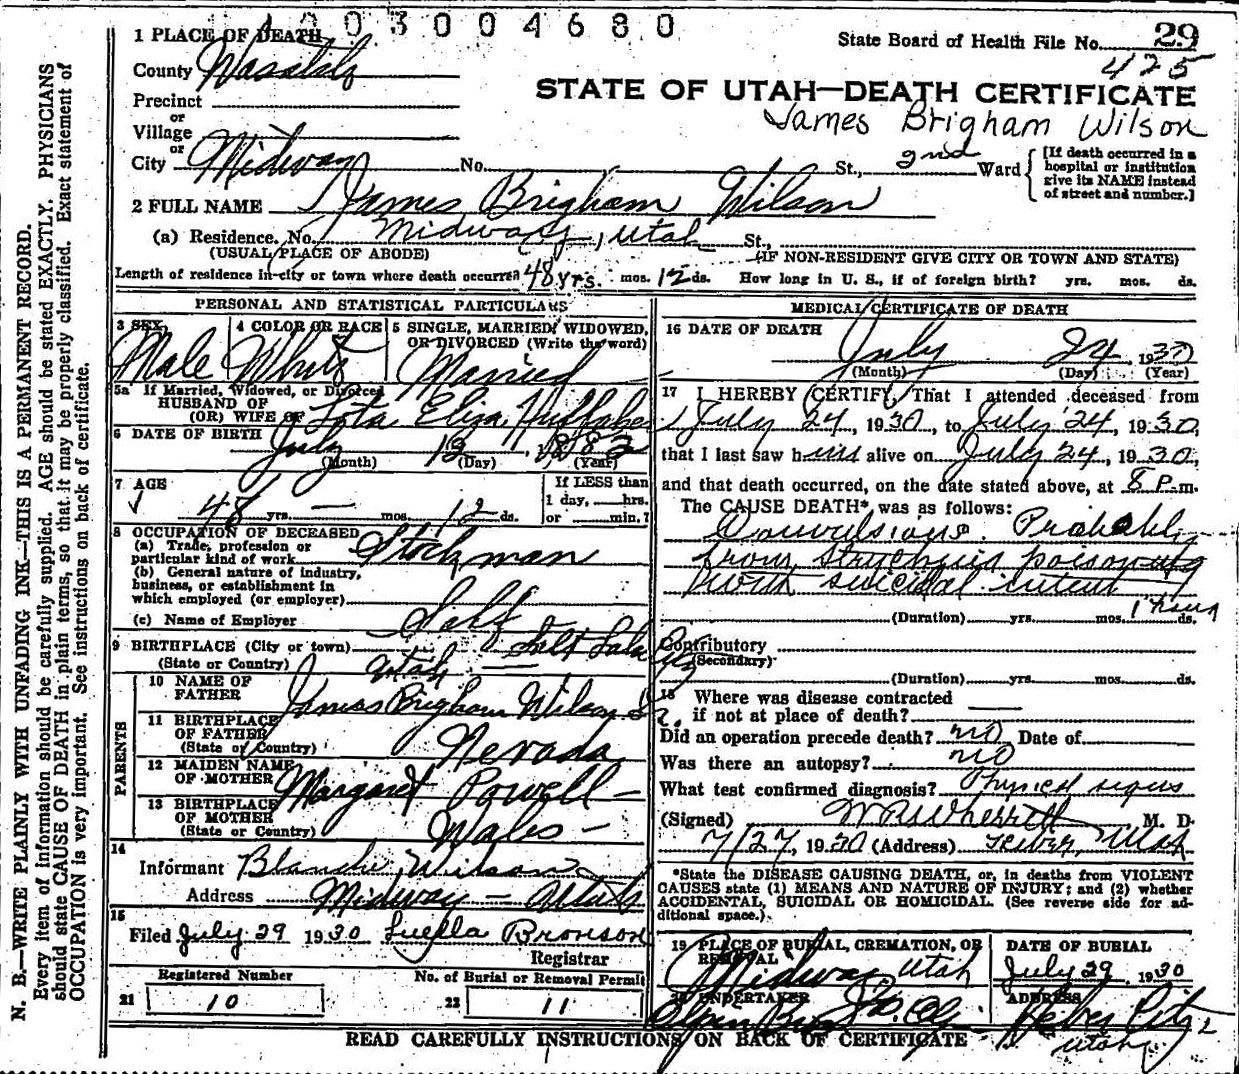 003004680
1 PLACE OF DEATH
State Board of Health File No. 29
425
County Wasatch
STATE OF UTAH—DEATH CERTIFICATE
Precinct
or
James Brigham Wilson
Village
or
City Midway No. St., 2nd Ward
[If death occurred in a
hospital or institution
give its NAME instead
of street and number.]
2 FULL NAME James Brigham Wilson
(a) Residence. No. Midway, Utah St.,
(USUAL PLACE OF ABODE) (IF NON-RESIDENT GIVE CITY OR TOWN AND STATE)
Length of residence in city or town where death occurred 48 yrs. mos. 12 ds. How long in U. S., if of foreign birth? yrs. mos. ds.
PERSONAL AND STATISTICAL PARTICULARS
3 SEX 4 COLOR OR RACE 5 SINGLE, MARRIED, WIDOWED,
OR DIVORCED (Write the word)
Male White Married
5a If Married, Widowed, or Divorced
HUSBAND OF
(OR) WIFE OF Lota Eliza Huffaker
6 DATE OF BIRTH July 12, 1882
(Month) (Day) (Year)
7 AGE If LESS than
1 day, hrs.
48 yrs. — mos. 12 ds. or min.?
8 OCCUPATION OF DECEASED
(a) Trade, profession or
particular kind of work Stockman
(b) General nature of industry,
business, or establishment in
which employed (or employer)
(c) Name of Employer Self
9 BIRTHPLACE (City or town) Salt Lake City
(State or Country) Utah
PARENTS
10 NAME OF
FATHER James Brigham Wilson Sr.
11 BIRTHPLACE
OF FATHER
(State or Country) Nevada
12 MAIDEN NAME
OF MOTHER Margaret Powell —
13 BIRTHPLACE
OF MOTHER
(State or Country) Wales —
14
Informant Blanche Wilson
Address Midway — Utah
15
Filed July 29 1930 Luella Bronson
Registrar
Registered Number No. of Burial or Removal Permit
21 10 22 11
MEDICAL CERTIFICATE OF DEATH
16 DATE OF DEATH
July 24, 1930
(Month) (Day) (Year)
17 I HEREBY CERTIFY, That I attended deceased from
July 24, 1930, to July 24, 1930,
that I last saw him alive on July 24, 1930,
and that death occurred, on the date stated above, at 8 P.m.
The CAUSE DEATH* was as follows:
Convulsions. Probably
from strychnia poisoning
with suicidal intent
1 hour
(Duration) yrs. mos. ds.
Contributory
(Secondary)
(Duration) yrs. mos. ds.
18 Where was disease contracted
if not at place of death?
Did an operation precede death? no Date of
Was there an autopsy? no
What test confirmed diagnosis? Physical signs
(Signed) W R Wherritt M. D.
7/27, 1930 (Address) Heber, Utah
*State the DISEASE CAUSING DEATH, or, in deaths from VIOLENT
CAUSES state (1) MEANS AND NATURE OF INJURY; and (2) whether
ACCIDENTAL, SUICIDAL OR HOMICIDAL. (See reverse side for ad-
ditional space.)
19 PLACE OF BURIAL, CREMATION, OR
REMOVAL
Midway Utah
DATE OF BURIAL
July 29 1930
20 UNDERTAKER
ADDRESS
Heber City
Utah
READ CAREFULLY INSTRUCTIONS ON BACK OF CERTIFICATE
N. B.—WRITE PLAINLY WITH UNFADING INK—THIS IS A PERMANENT RECORD.
Every item of information should be carefully supplied. AGE should be stated EXACTLY. PHYSICIANS
should state CAUSE OF DEATH in plain terms, so that it may be properly classified. Exact statement of
OCCUPATION is very important. See instructions on back of certificate.